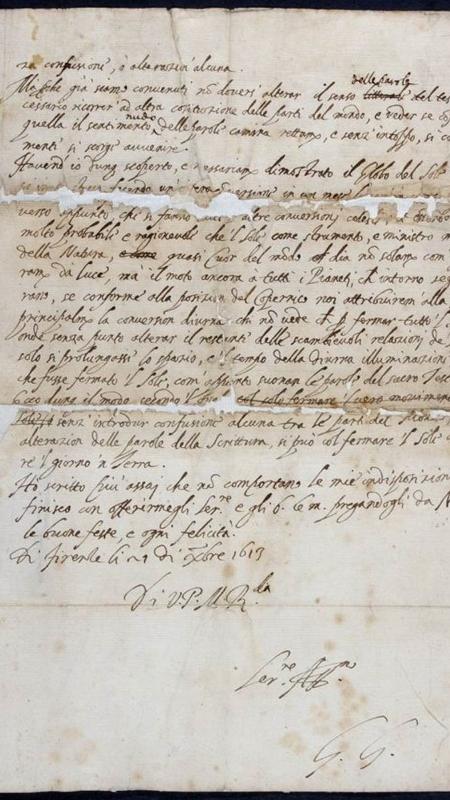 za confusione, ò alterazion' alcuna.
delle parole
Ma perche già siamo convenuti nō doversi alterar il senso litterale del tes
cessario ricorrer' ad altra costituzione delle parti del mondo, e veder se
nudo
quella il sentimento delle parole camina rettamte, e senz' intoppo, si co
mente si scorge avvenire.
Havend' io dunq scoperto, e necessariamte dimostrato il Globo del Sole
verso appunto, che si fanno tutte altre conversioni celesti; è
molto probabile e ragionevole che 'l Sole, come strumento, e ministro
della Natura, quasi Cuor del mōdo dia nō solamte com
ramte da luce, ma il moto ancora à tutti i Pianeti, che intorno se
rano, se conforme alla posizion del Copernico noi attribuirem alla
principalmte la conversion diurna; chi nō vede che p fermar tutto 'l
onde senza punto alterar il restante delle scambievoli relazioni de
solo si prolungasse lo spazio, e 'l tempo della diurna illuminazion
che fusse fermato 'l Sole, com' appunto suonan le parole del sacro Tes
Ecco dunq il modo secondo 'l col solo fermare
senz' introdur confusione alcuna tra le parti del mon
alterazion delle parole della Scrittura, si può col fermare 'l Sole
re 'l giorno 'n Terra.
Ho scritto più assai che nō comportano le mie indisposizion
finisco con offerirmegli Serre e gli b. le m. pregandogli da N
le buone feste, e ogni felicità.
Di Firenze li 21 di Xbre 1613
Di V. P. M. R.da
Serre Affmo
G. G.